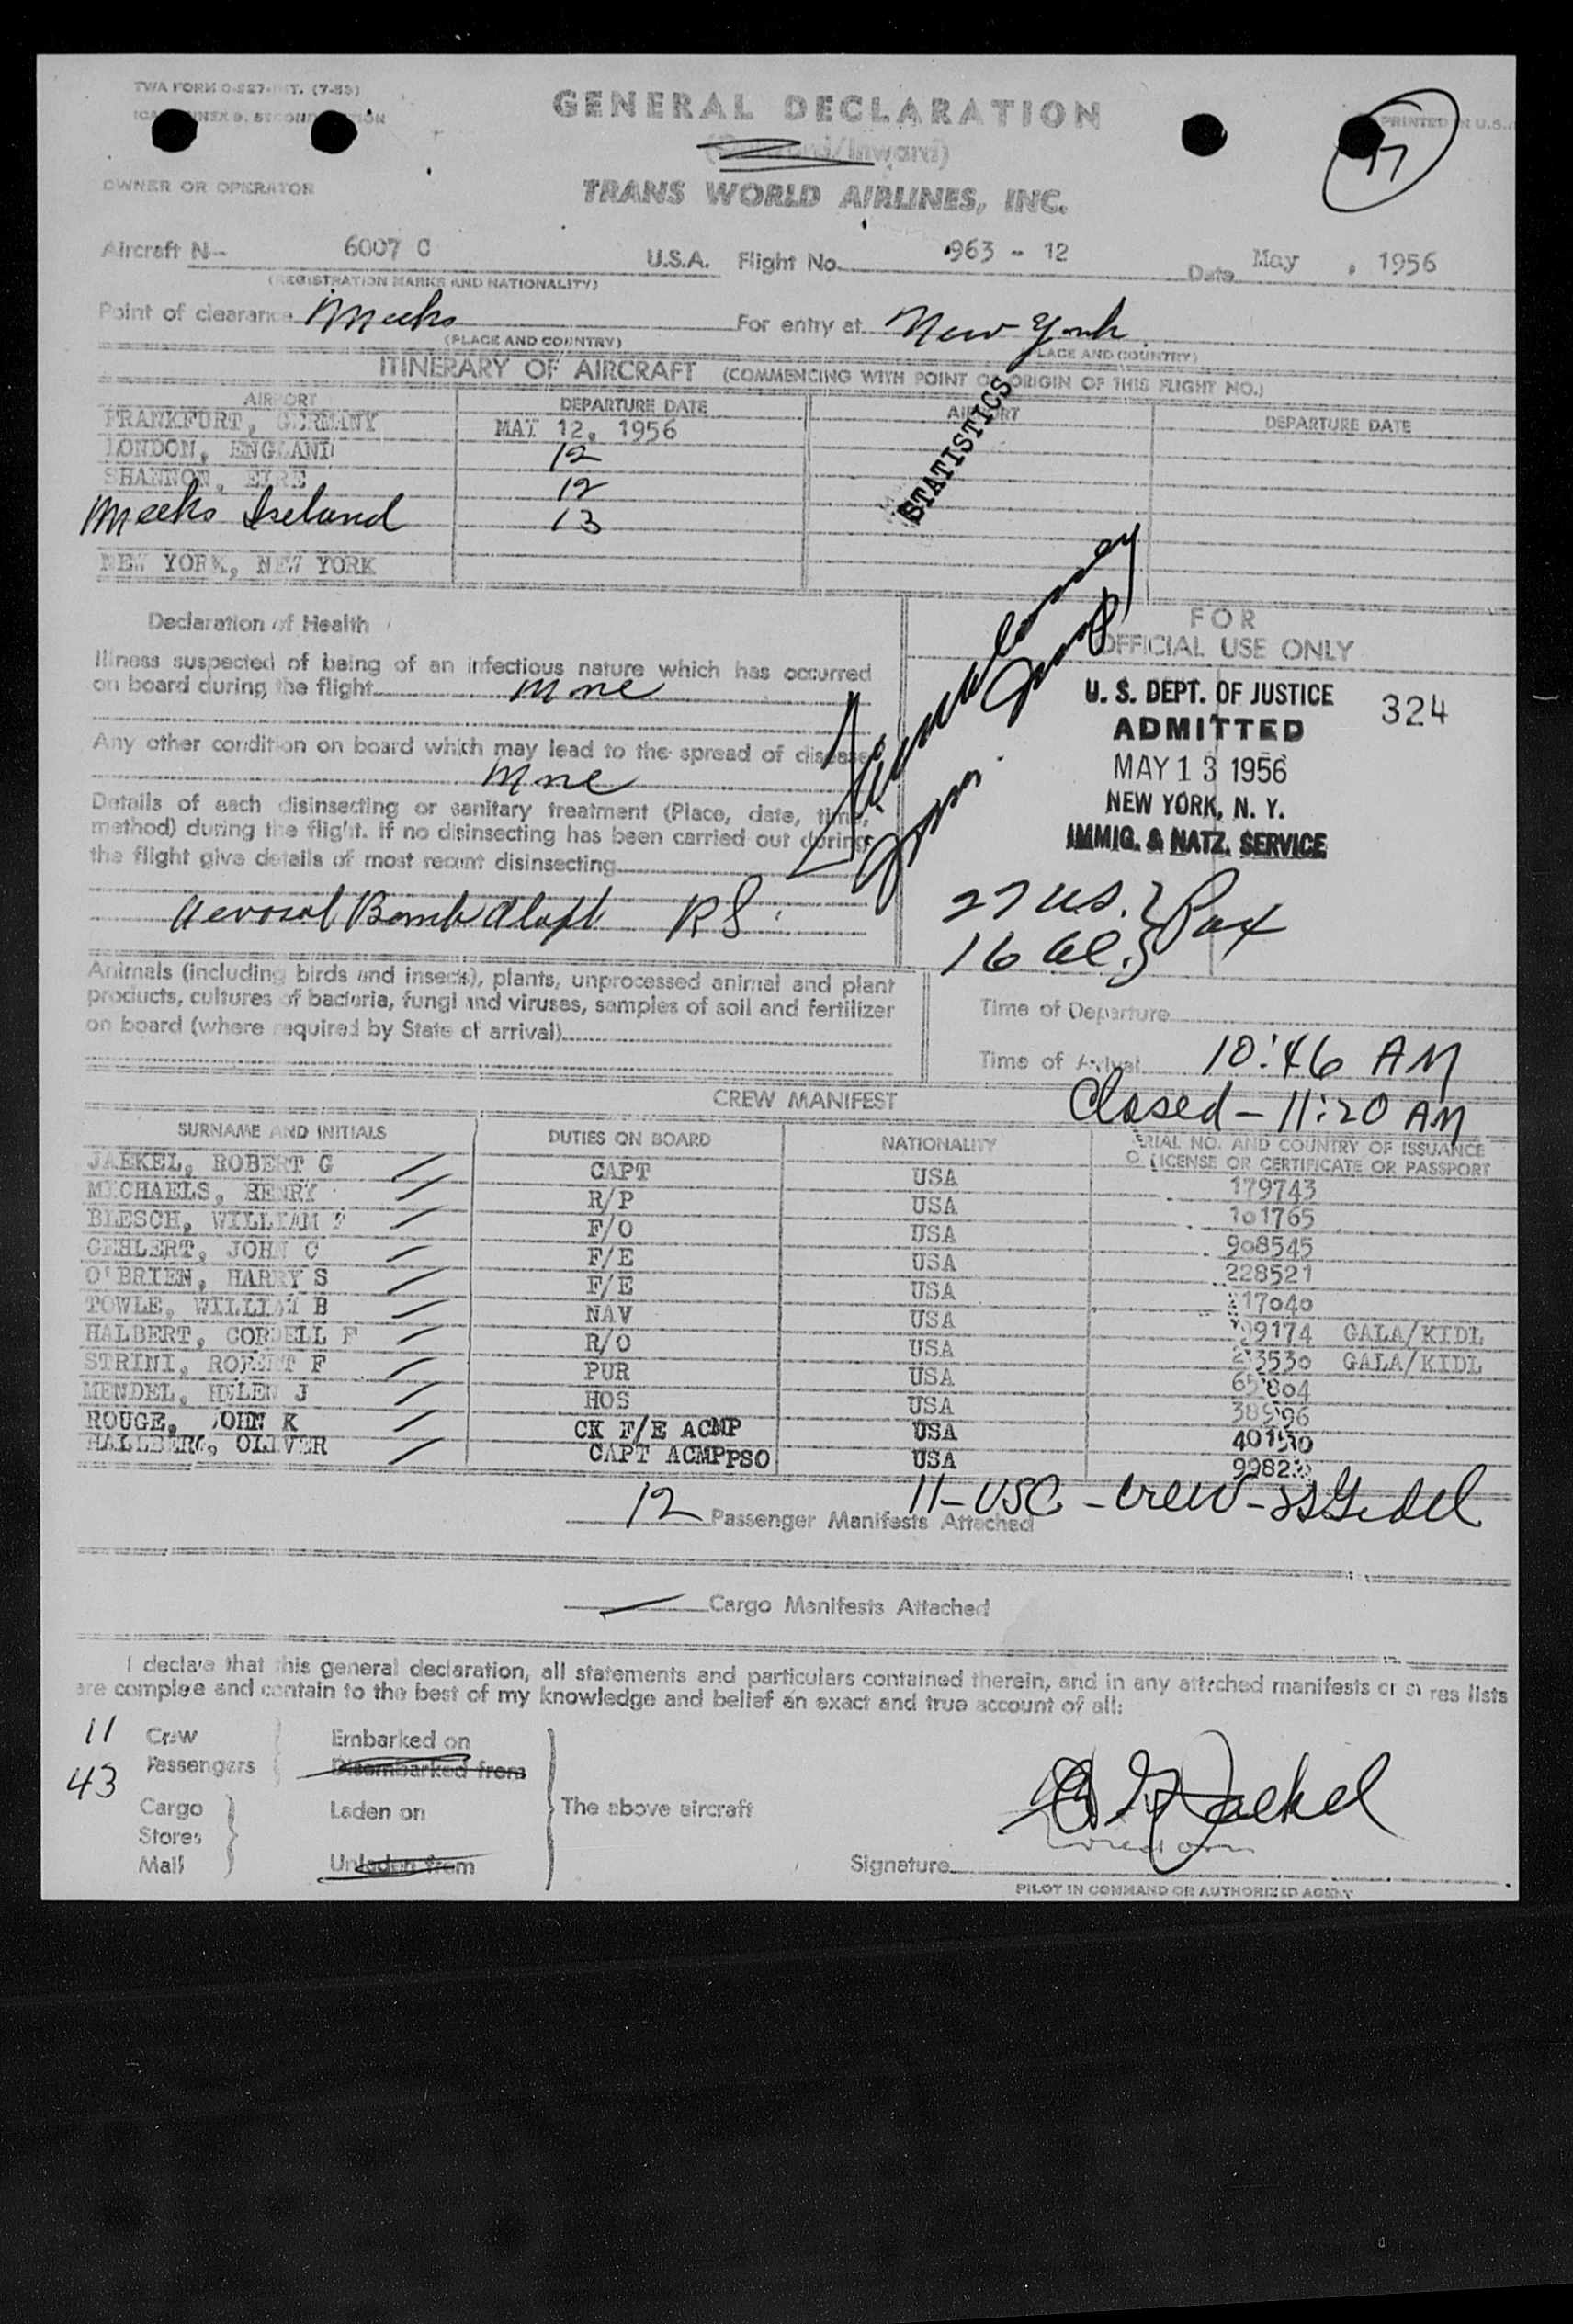 TWA FORM O-527-INT. (7-55)
PRINTED IN U.S.A.
GENERAL DECLARATION
(Outward/Inward)
17
OWNER OR OPERATOR
TRANS WORLD AIRLINES, INC.
Aircraft N- 6007 C U.S.A. Flight No. 963 - 12 Date May , 1956
(REGISTRATION MARKS AND NATIONALITY)
Point of clearance Meeks For entry at New York
(PLACE AND COUNTRY) (PLACE AND COUNTRY)
ITINERARY OF AIRCRAFT (COMMENCING WITH POINT OF ORIGIN OF THIS FLIGHT NO.)
AIRPORT DEPARTURE DATE AIRPORT DEPARTURE DATE
FRANKFURT, GERMANY MAY 12, 1956
LONDON, ENGLAND 12
SHANNON, EIRE 12
Meeks Iseland 13
NEW YORK, NEW YORK
STATISTICS
Declaration of Health
Illness suspected of being of an infectious nature which has occurred
on board during the flight None
Any other condition on board which may lead to the spread of disease
None
Details of each disinsecting or sanitary treatment (Place, date, time,
method) during the flight. If no disinsecting has been carried out during
the flight give details of most recent disinsecting
Aerosol Bomb Aloft RS
FOR
OFFICIAL USE ONLY
U. S. DEPT. OF JUSTICE 324
ADMITTED
MAY 13 1956
NEW YORK, N. Y.
IMMIG. & NATZ. SERVICE
27 U.S. } Pax
16 al. }
Animals (including birds and insects), plants, unprocessed animal and plant
products, cultures of bacteria, fungi and viruses, samples of soil and fertilizer
on board (where required by State of arrival)
Time of Departure
Time of Arrival 10:46 AM
Closed - 11:20 AM
CREW MANIFEST
SURNAME AND INITIALS DUTIES ON BOARD NATIONALITY SERIAL NO. AND COUNTRY OF ISSUANCE
OF LICENSE OR CERTIFICATE OR PASSPORT
JAEKEL, ROBERT G CAPT USA 179743
MICHAELS, HENRY R/P USA 101765
BLESCH, WILLIAM F F/O USA 908545
OEHLERT, JOHN C F/E USA 228521
O'BRIEN, HARRY S F/E USA 17040
TOWLE, WILLIAM B NAV USA 99174 GALA/KIDL
HALBERT, CORDELL F R/O USA 23530 GALA/KIDL
STRINI, ROBERT F PUR USA 65804
MENDEL, HELEN J HOS USA 38996
ROUGE, JOHN K CK F/E ACMP USA 401530
HALLBERG, OLIVER CAPT ACMP PSO USA 9982
11-USC - crew -
12 Passenger Manifests Attached
Cargo Manifests Attached
I declare that this general declaration, all statements and particulars contained therein, and in any attached manifests or stores lists
are complete and contain to the best of my knowledge and belief an exact and true account of all:
11 Crew Embarked on
43 Passengers Disembarked from
Cargo Laden on The above aircraft
Stores
Mail Unladen from
Signature
PILOT IN COMMAND OR AUTHORIZED AGENT